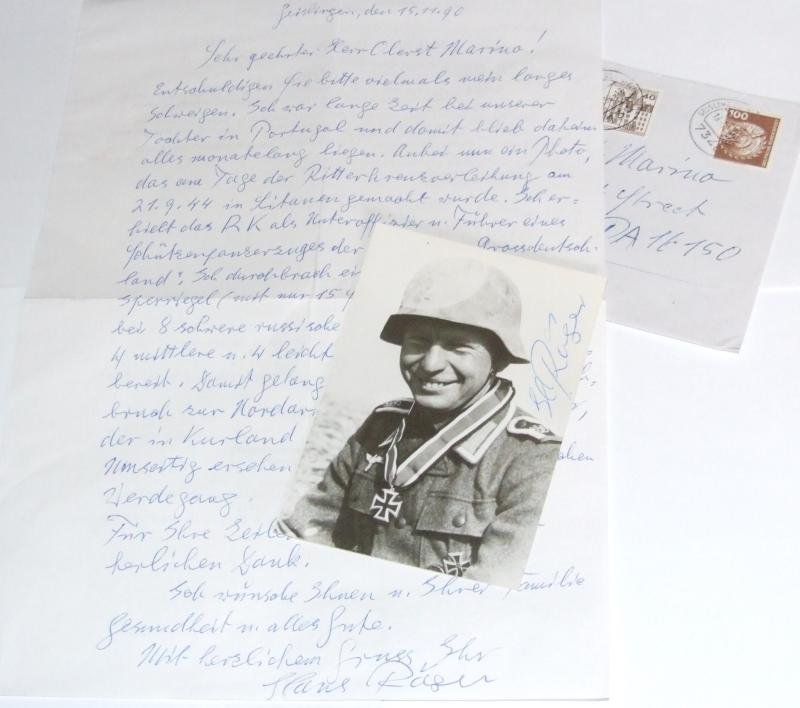 Geislingen, den 15.11.90
Sehr geehrter Herr Oberst Marino!
Entschuldigen Sie bitte vielmals mein langes
Schweigen. Ich war lange Zeit bei unserer
Tochter in Portugal und damit blieb daheim
alles monatelang liegen. Anbei nun ein Photo,
das am Tage der Ritterkreuzverleihung am
21.9.44 in Litauen gemacht wurde. Ich er=
hielt das RK als Unteroffizier u. Führer eines
Schützenpanzerzuges der Grossdeutsch-
land". Ich durchbrach ei
Sperriegel (mit nur 15
bei 8 schwere russische
4 mittlere u. 4 leicht
bereit. Damit gelang
bruch zur Nordar
der in Kurland
Umseitig ersehen
Werdegang.
Für Ihre Zeilen
herzlichen Dank.
Ich wünsche Ihnen u. Ihrer Familie
Gesundheit u. alles Gute.
Mit herzlichem Gruss, Ihr
Hans Röger
Röger
40
100
Marino
Street
PA 16150